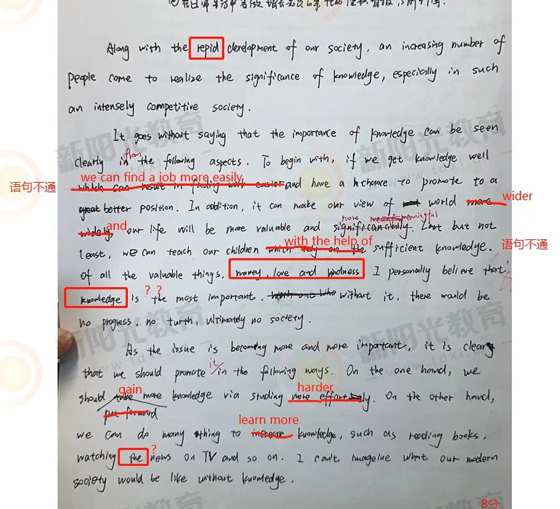 Along with the repid development of our society, an increasing number of
people come to realize the significance of knowledge, especially in such
an intensely competitive society.
It goes without saying that the importance of knowledge can be seen
clearly in from the following aspects. To begin with, if we get knowledge well
we can find a job more easily
语句不通
which can result in finding work easier and have a chance to promote to a
great better position. In addition, it can make our view of world more wider
widely and our life will be more valuable and more meaningful Last but not
least, we can teach our children which rely on the with the help of sufficient knowledge. 语句不通
of all the valuable things. money, love and kindness I personally believe that
knowledge is ?? the most important. without it, there would be
no progress, no turth, ultimately no society.
As the issue is becoming more and more important, it is clear
that we should promote it in the following ways. On the one hand, we
gain
should take more knowledge via studing more effort harder. On the other hand,
put forward
learn more
we can do many thing to increase knowledge, such as reading books,
watching the ? news on TV and so on. I can't imagine what our modern
society would be like without knowledge.
8分
新阳光教育